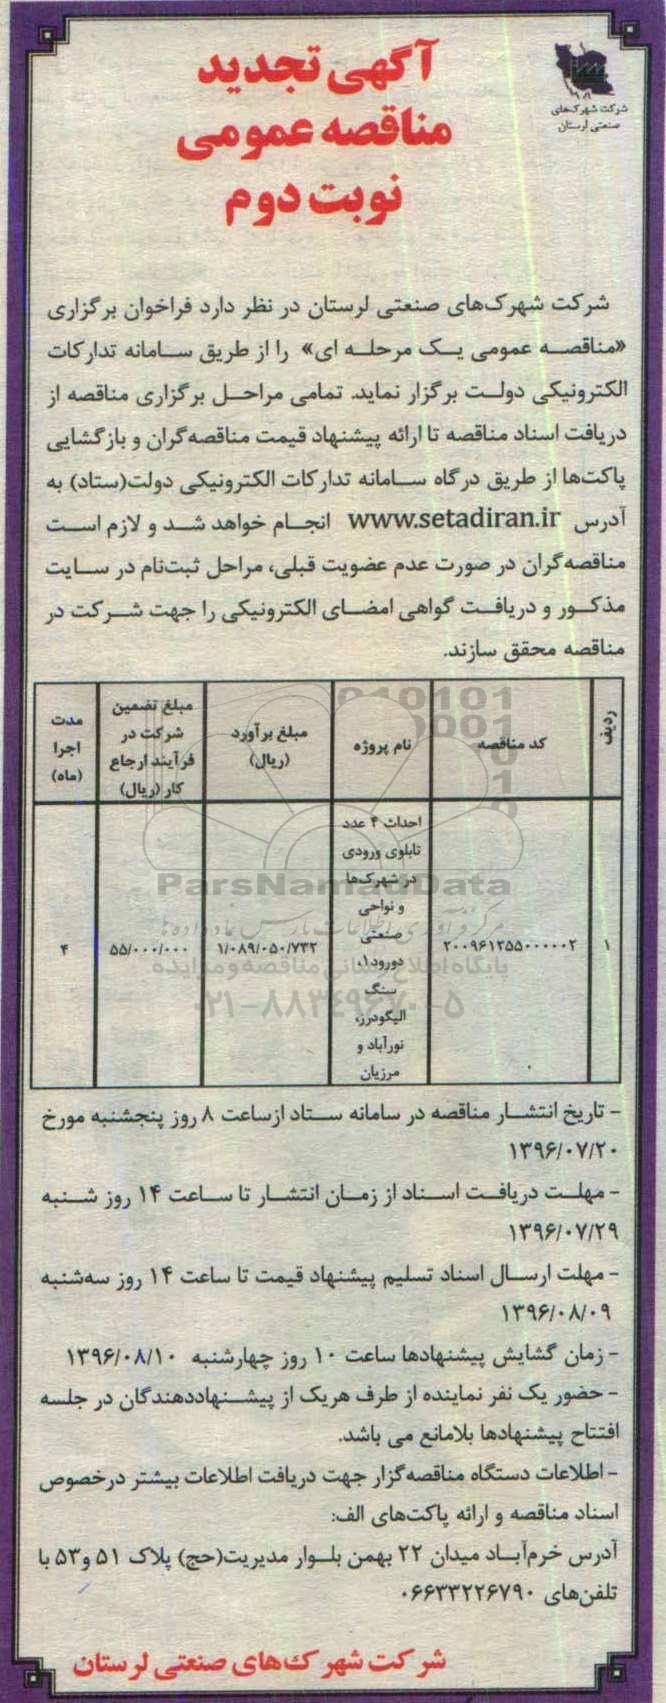 آگهی تجدید
مناقصه عمومی
نوبت دوم
شرکت شهرک‌های
صنعتی لرستان
شرکت شهرک‌های صنعتی لرستان در نظر دارد فراخوان برگزاری
«مناقصه عمومی یک مرحله ای» را از طریق سامانه تدارکات
الکترونیکی دولت برگزار نماید. تمامی مراحل برگزاری مناقصه از
دریافت اسناد مناقصه تا ارائه پیشنهاد قیمت مناقصه‌گران و بازگشایی
پاکت‌ها از طریق درگاه سامانه تدارکات الکترونیکی دولت(ستاد) به
آدرس www.setadiran.ir انجام خواهد شد و لازم است
مناقصه‌گران در صورت عدم عضویت قبلی، مراحل ثبت‌نام در سایت
مذکور و دریافت گواهی امضای الکترونیکی را جهت شرکت در
مناقصه محقق سازند.
ردیف
کد مناقصه
نام پروژه
مبلغ برآورد
(ریال)
مبلغ تضمین
شرکت در
فرآیند ارجاع
کار (ریال)
مدت
اجرا
(ماه)
۱
۲۰۰۹۶۱۲۵۵۰۰۰۰۰۲
احداث ۴ عدد
تابلوی ورودی
در شهرک‌ها
و نواحی
صنعتی
دورود۱،
سنگ
الیگودرز،
نورآباد و
مرزیان
۱/۰۸۹/۰۵۰/۷۳۲
۵۵/۰۰۰/۰۰۰
۴
ParsNamadData
پایگاه اطلاع رسانی مناقصه و مزایده
۰۲۱-۸۸۳۴۹۶۷۰-۵
- تاریخ انتشار مناقصه در سامانه ستاد ازساعت ۸ روز پنجشنبه مورخ
۱۳۹۶/۰۷/۲۰
- مهلت دریافت اسناد از زمان انتشار تا ساعت ۱۴ روز شنبه
۱۳۹۶/۰۷/۲۹
- مهلت ارسال اسناد تسلیم پیشنهاد قیمت تا ساعت ۱۴ روز سه‌شنبه
۱۳۹۶/۰۸/۰۹
- زمان گشایش پیشنهادها ساعت ۱۰ روز چهارشنبه ۱۳۹۶/۰۸/۱۰
- حضور یک نفر نماینده از طرف هریک از پیشنهاددهندگان در جلسه
افتتاح پیشنهادها بلامانع می باشد.
- اطلاعات دستگاه مناقصه‌گزار جهت دریافت اطلاعات بیشتر درخصوص
اسناد مناقصه و ارائه پاکت‌های الف:
آدرس خرم‌آباد میدان ۲۲ بهمن بلوار مدیریت(حج) پلاک ۵۱ و۵۳ با
تلفن‌های ۰۶۶۳۳۲۲۶۷۹۰
شرکت شهرک‌های صنعتی لرستان